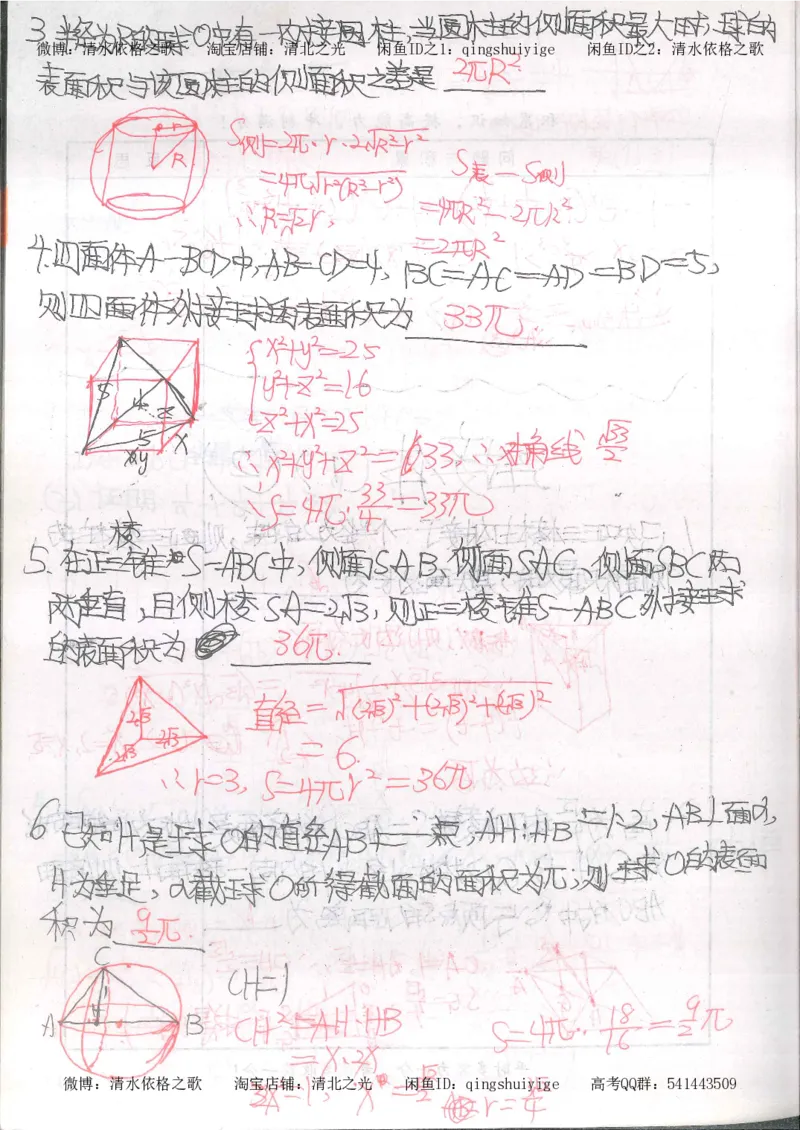 3. 半径为R的球O中有一内接圆柱,当圆柱的侧面积最大时,球的
微博：清水依格之歌 淘宝店铺：清北之光 闲鱼ID之1：qingshuiyige 闲鱼ID之2：清水依格之歌
表面积与该圆柱的侧面积之差是 2πR²
S侧=2π·r·2√R²-r²
=4π√r²(R²-r²)
∴R=√2r,
r
R
S表-S侧
=4πR²-2πR²
=2πR²
4. 四面体A-BCD中,AB=CD=4, BC=AC=AD=BD=5,
则四面体外接球的表面积为 33π.
x²+y²=25
y²+z²=16
z²+x²=25
∴x²+y²+z²=33,∴对角线 √33/2
∴S=4π·33/4=33π
5 4 z 5 x y
棱
5. 在正三锥S-ABC中,侧面SAB、侧面SAC、侧面SBC两
两垂直,且侧棱SA=2√3,则正三棱锥S-ABC外接球
的表面积为 36π.
2√3 2√3 2√3
直径=√(2√3)²+(2√3)²+(2√3)²
=6.
∴r=3, S=4πr²=36π
6 已知H是球O的直径AB上一点,AH:HB=1:2,AB⊥面α,
H为垂足,α截球O所得截面的面积为π,则球O的表面
积为 9/2π.
C
A H B
CH=1
CH²=AH·HB
=x·2x
S=4π·18/16=9/2π
微博：清水依格之歌 淘宝店铺：清北之光 闲鱼ID：qingshuiyige 高考QQ群：541443509